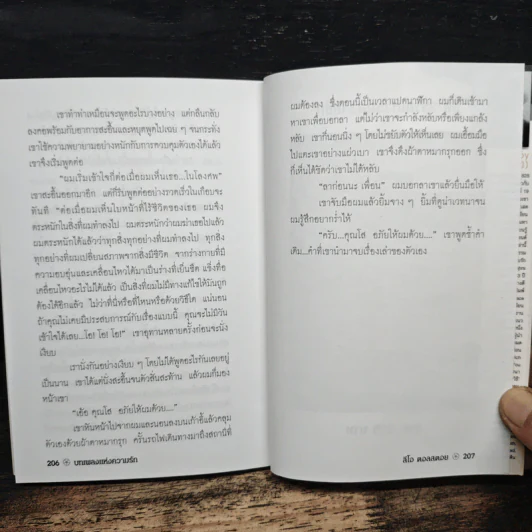 เขาทำท่าเหมือนจะพูดอะไรบางอย่าง แต่กลืนกลับ
ลงคอพร้อมกับอาการสะอื้นและหยุดพูดไปเฉย ๆ จนกระทั่ง
เขาใช้ความพยายามอย่างหนักกับการควบคุมตัวเองได้แล้ว
เขาจึงเริ่มพูดต่อ
"ผมเริ่มเข้าใจก็ต่อเมื่อผมเห็นเธอ...ในโลงศพ"
เขาสะอื้นออกมาอีก แต่ก็รีบพูดต่ออย่างรวดเร็วในเกือบจะ
ทันที "ต่อเมื่อผมเห็นใบหน้าที่ไร้ชีวิตของเธอ ผมจึง
ตระหนักในสิ่งที่ผมทำลงไป ผมตระหนักว่าผมฆ่าเธอไปแล้ว
ผมตระหนักได้แล้วว่าทุกสิ่งทุกอย่างที่ผมทำลงไป ทุกสิ่ง
ทุกอย่างที่ผมเปลี่ยนสภาพจากสิ่งมีชีวิต จากร่างกายที่มี
ความอบอุ่นและเคลื่อนไหวได้มาเป็นร่างที่เย็นชืด แข็งทื่อ
เคลื่อนไหวอะไรไม่ได้แล้ว เป็นสิ่งที่ผมไม่มีทางแก้ไขให้มันถูก
ต้องได้อีกแล้ว ไม่ว่าที่นี่หรือที่ไหนหรือด้วยวิธีใด แน่นอน
ถ้าคุณไม่เคยมีประสบการณ์กับเรื่องแบบนี้ คุณจะไม่มีวัน
เข้าใจได้เลย...โอ! โอ! โอ!" เขาอุทานหลายครั้งก่อนจะนั่ง
เงียบ
เรานั่งกันอย่างเงียบ ๆ โดยไม่ได้พูดอะไรกันเลยอยู่
เป็นนาน เขาได้แต่นั่งสะอื้นจนตัวสั่นสะท้าน แล้วผมก็มอง
หน้าเขา
"เฮ้อ คุณโฮ อภัยให้ผมด้วย...."
เขาหันหน้าไปจากผมและนอนลงบนเก้าอี้แล้วคลุม
ตัวเองด้วยผ้าตาหมากรุก ครั้นรถไฟเดินทางมาถึงสถานีที่
206 บทเพลงแห่งความรัก
ผมต้องลง ซึ่งตอนนี้เป็นเวลาแปดนาฬิกา ผมก็เดินเข้ามา
หาเขาเพื่อบอกลา แต่ไม่ว่าเขาจะกำลังหลับหรือเพียงแกล้ง
หลับ เขาก็นอนนิ่ง ๆ โดยไม่ขยับตัวให้เห็นเลย ผมเอื้อมมือ
ไปแตะเขาอย่างแผ่วเบา เขาจึงดึงผ้าตาหมากรุกออก ซึ่ง
ก็เห็นได้ชัดว่าเขาไม่ได้หลับ
"ลาก่อนนะ เพื่อน" ผมบอกลาเขาแล้วยื่นมือให้
เขาจับมือผมแล้วยิ้มจาง ๆ ยิ้มที่ดูน่าเวทนาจน
ผมรู้สึกอยากร่ำไห้
"ครับ...คุณโฮ อภัยให้ผมด้วย...." เขาพูดซ้ำคำ
เดิม...คำที่เขานำมาจบเรื่องเล่าของตัวเอง
ลีโอ ตอลสตอย 207